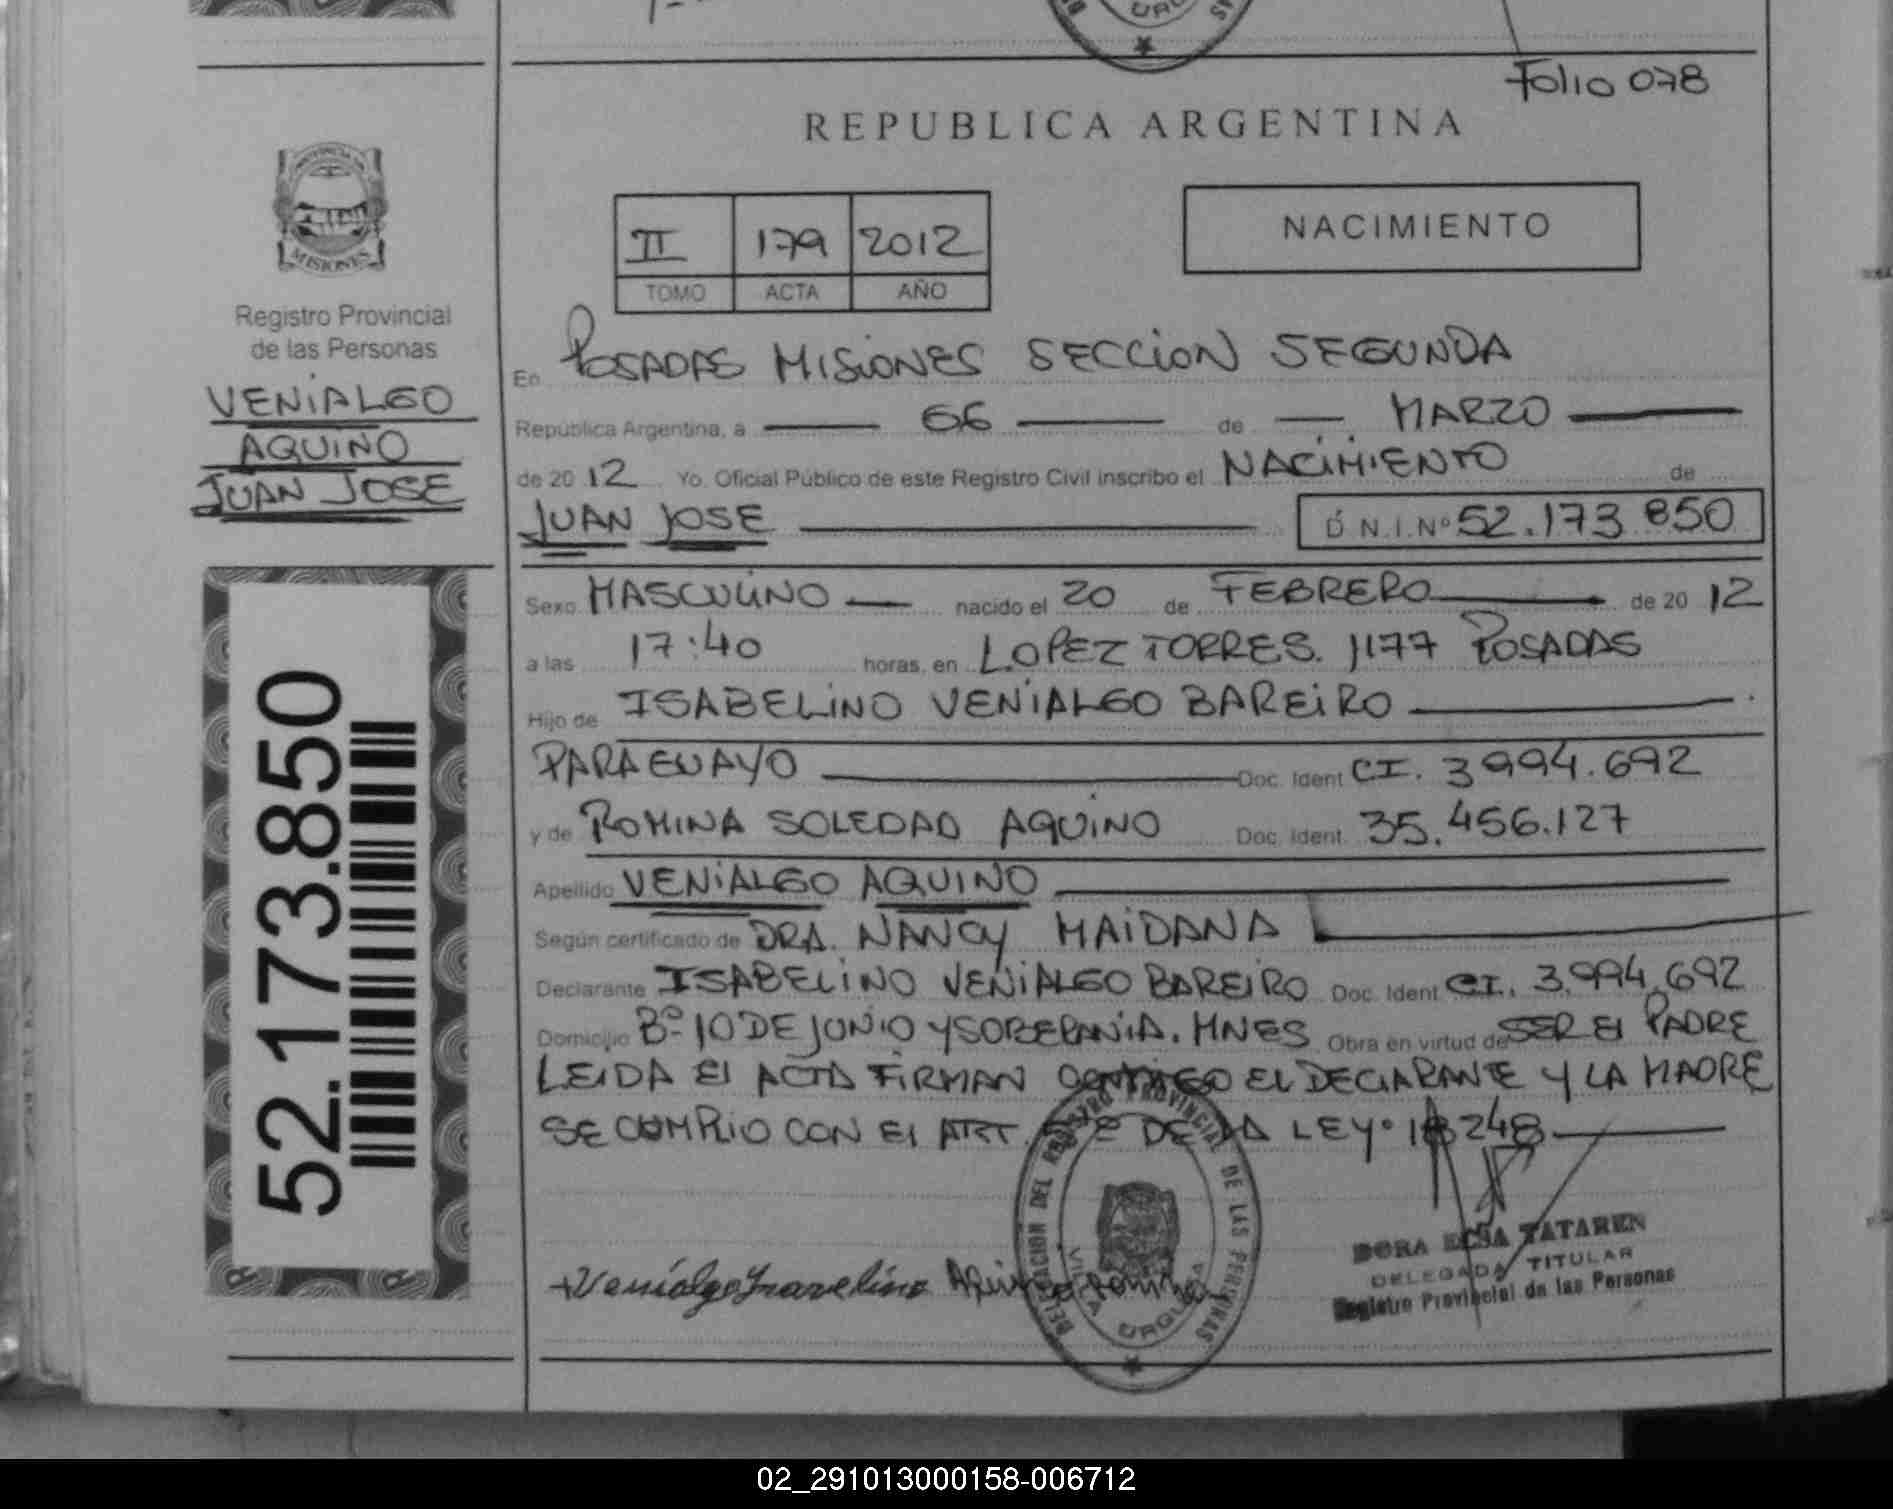 Folio 078
REPUBLICA ARGENTINA
PROVINCIA DE
MISIONES
Registro Provincial
de las Personas
VENIALGO
AQUINO
JUAN JOSE
52.173.850
II 179 2012
TOMO ACTA AÑO
NACIMIENTO
En POSADAS MISIONES SECCION SEGUNDA
República Argentina, a 06 de MARZO
de 20 12 Yo, Oficial Público de este Registro Civil inscribo el NACIMIENTO de
JUAN JOSE D.N.I.Nº 52.173.850
Sexo MASCULINO nacido el 20 de FEBRERO de 20 12
a las 17:40 horas, en LOPEZ TORRES. 1177 POSADAS
Hijo de ISABELINO VENIALGO BAREIRO
PARAGUAYO Doc. Ident. CI. 3994.692
y de ROMINA SOLEDAD AQUINO Doc. Ident. 35.456.127
Apellido VENIALGO AQUINO
Según certificado de DRA. NANCY MAIDANA
Declarante ISABELINO VENIALGO BAREIRO Doc. Ident CI. 3.994.692
Domicilio Bº 10 DE JUNIO Y SOBERANIA. MNES Obra en virtud de SER El PADRE
LEIDA El ACTA FIRMAN CONMIGO EL DECLARANTE Y LA MADRE
SE CUMPLIO CON El ART. DE LA LEY º 18248
DELEGACION DEL REGISTRO PROVINCIAL DE LAS PERSONAS
VILLA URQUIZA
Venialgo Aquino Romina
DORA ELSA TATAREN
DELEGADA TITULAR
Registro Provincial de las Personas
02_291013000158-006712